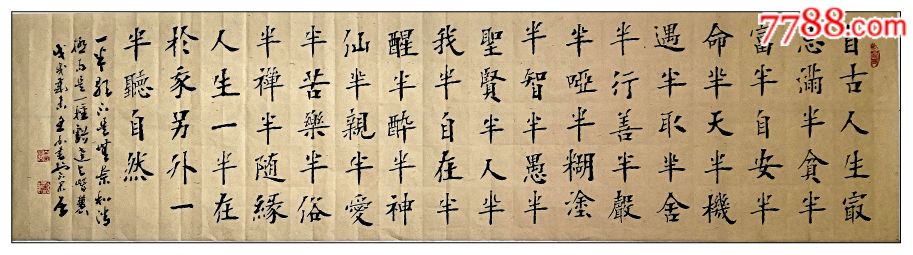 自古人生最
忌滿半貪半
富半自安半
命半天半機
遇半取半舍
半行善半聾
半啞半糊塗
半智半愚半
聖賢半人半
我半自在半
醒半醉半神
仙半親半愛
半苦樂半俗
半禪半隨緣
人生一半在
於我另外一
半聽自然
一半歌不是
是一種豁達
戊戌年
7788.com
中国收藏热线